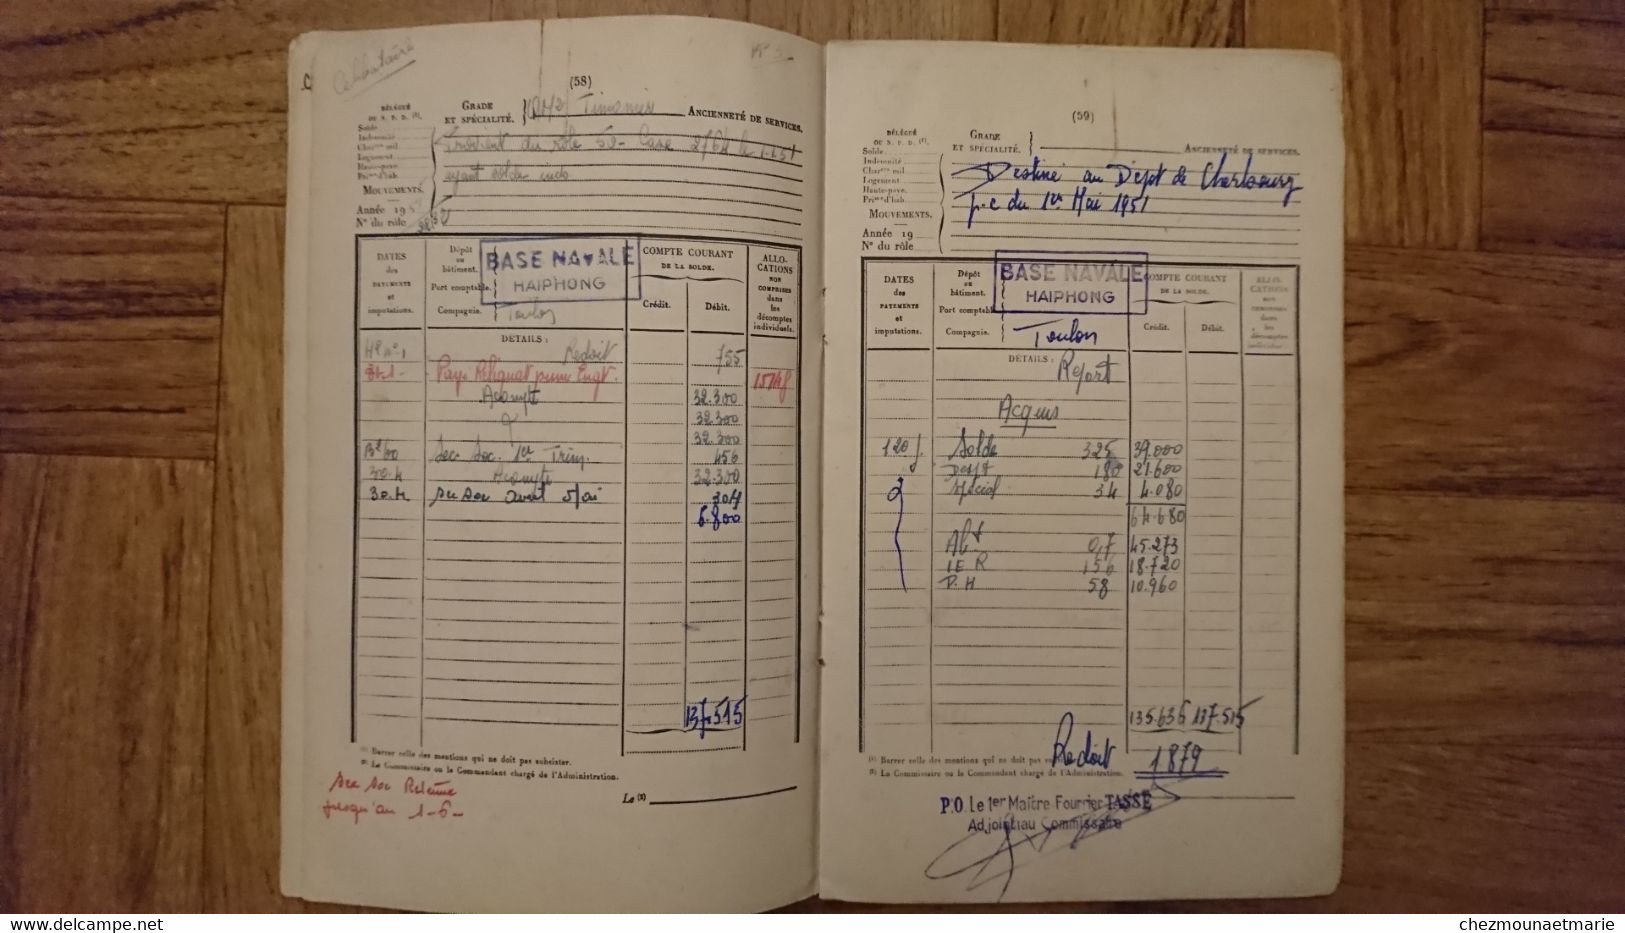 Celibataire
N° 3
(58)
DÉLÉGUÉ
DU S. P. D. (1).
Solde
Indemnité
Char^mes mil.
Logement
Haute-paye.
Pri^mes d'hab.
GRADE
ET SPÉCIALITÉ.
QM2 Timonier
ANCIENNETÉ DE SERVICES.
Provient du rôle 50 - Case 2764 le 1.1.51
ayant solde indo
MOUVEMENTS.
Année 195
N° du rôle
DATES
des
PAYEMENTS
et
imputations.
Dépôt
ou
bâtiment.
Port comptable.
Compagnie.
BASE NAVALE
HAIPHONG
Toulon
COMPTE COURANT
DE LA SOLDE.
Crédit.
Débit.
ALLO-
CATIONS
NON
COMPRISES
dans
les
décomptes
individuels.
DÉTAILS :
Redoit 755
Payé Reliquat prime Engt.
Acompte 32.300
32.300
32.300
Sec. Soc. 1er Trim. 456
30.4 Acompte 32.300
30.4 sec soc avril 304
6.800
137.515
(1) Barrer celle des mentions qui ne doit pas subsister.
(2) Le Commissaire ou le Commandant chargé de l'Administration.
Le (2)
sec soc Retenue
jusqu'au 1-6-
(59)
DÉLÉGUÉ
DU S. P. D. (1).
Solde
Indemnité
Char^mes mil.
Logement
Haute-paye.
Pri^mes d'hab.
GRADE
ET SPÉCIALITÉ.
ANCIENNETÉ DE SERVICES.
Destiné au Dépt de Cherbourg
p.c du 1er Mai 1951
MOUVEMENTS.
Année 19
N° du rôle
DATES
des
PAYEMENTS
et
imputations.
Dépôt
ou
bâtiment.
Port comptable
Compagnie.
BASE NAVALE
HAIPHONG
Toulon
COMPTE COURANT
DE LA SOLDE.
Crédit.
Débit.
ALLO-
CATIONS
NON
COMPRISES
dans
les
décomptes
individuels.
DÉTAILS :
Report
Acquis
120 j. Solde 325 39.000
180 21.600
Spécial 34 4.080
64.680
Abt 0,7 45.273
I E R 156 18.720
P. H 58 10.960
135.636 137.515
Redoit 1879
(1) Barrer celle des mentions qui ne doit pas
(2) Le Commissaire ou le Commandant chargé de l'Administration.
P.O. Le 1er Maître Fourrier TASSE
Adjoint au Commissaire
delcampe.net
chezmounaetmarie